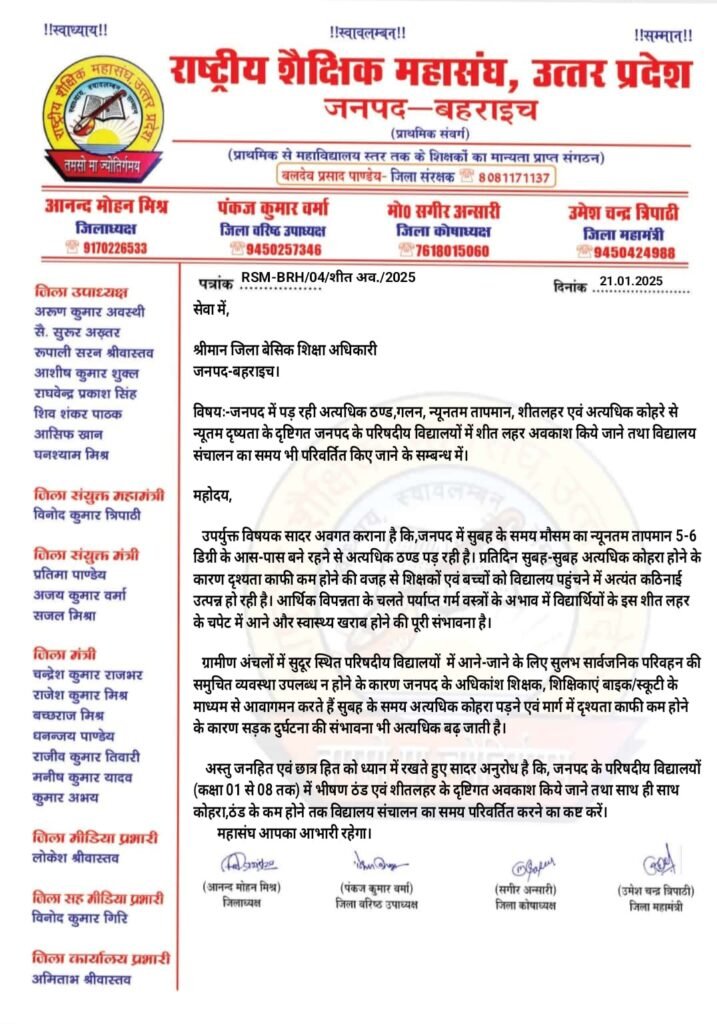 !!स्वाध्याय!! !!स्वावलम्बन!! !!सम्मान!!
राष्ट्रीय शैक्षिक महासंघ, उत्तर प्रदेश
राष्ट्रीय शैक्षिक महासंघ, उत्तर प्रदेश
तमसो मा ज्योतिर्गमय
जनपद–बहराइच
(प्राथमिक संवर्ग)
(प्राथमिक से महाविद्यालय स्तर तक के शिक्षकों का मान्यता प्राप्त संगठन)
बलदेव प्रसाद पाण्डेय- जिला संरक्षक ☏ 8081171137
आनन्द मोहन मिश्र पंकज कुमार वर्मा मो0 सगीर अन्सारी उमेश चन्द्र त्रिपाठी
जिलाध्यक्ष जिला वरिष्ठ उपाध्यक्ष जिला कोषाध्यक्ष जिला महामंत्री
☏ 9170226533 ☏9450257346 ☏7618015060 ☏9450424988
जिला उपाध्यक्ष
अरूण कुमार अवस्थी
सै. सुरुर अख़्तर
रूपाली सरन श्रीवास्तव
आशीष कुमार शुक्ल
राघवेन्द्र प्रकाश सिंह
शिव शंकर पाठक
आसिफ खान
घनश्याम मिश्र
जिला संयुक्त महामंत्री
विनोद कुमार त्रिपाठी
जिला संयुक्त मंत्री
प्रतिमा पाण्डेय
अजय कुमार वर्मा
सजल मिश्रा
जिला मंत्री
चन्द्रेश कुमार राजभर
राजेश कुमार मिश्र
बच्छराज मिश्र
धनन्जय पाण्डेय
राजीव कुमार तिवारी
मनीष कुमार यादव
कुमार अभय
जिला मीडिया प्रभारी
लोकेश श्रीवास्तव
जिला सह मीडिया प्रभारी
विनोद कुमार गिरि
जिला कार्यालय प्रभारी
अमिताभ श्रीवास्तव
पत्रांक RSM-BRH/04/शीत अव./2025 दिनांक 21.01.2025
सेवा में,
श्रीमान जिला बेसिक शिक्षा अधिकारी
जनपद-बहराइच।
विषयः-जनपद में पड़ रही अत्यधिक ठण्ड,गलन, न्यूनतम तापमान, शीतलहर एवं अत्यधिक कोहरे से
न्यूतम दृष्यता के दृष्टिगत जनपद के परिषदीय विद्यालयों में शीत लहर अवकाश किये जाने तथा विद्यालय
संचालन का समय भी परिवर्तित किए जाने के सम्बन्ध में।
महोदय,
उपर्युक्त विषयक सादर अवगत कराना है कि,जनपद में सुबह के समय मौसम का न्यूनतम तापमान 5-6
डिग्री के आस-पास बने रहने से अत्यधिक ठण्ड पड़ रही है। प्रतिदिन सुबह-सुबह अत्यधिक कोहरा होने के
कारण दृश्यता काफी कम होने की वजह से शिक्षकों एवं बच्चों को विद्यालय पहुंचने में अत्यंत कठिनाई
उत्पन्न हो रही है। आर्थिक विपन्नता के चलते पर्याप्त गर्म वस्त्रों के अभाव में विद्यार्थियों के इस शीत लहर
के चपेट में आने और स्वास्थ्य खराब होने की पूरी संभावना है।
ग्रामीण अंचलों में सुदूर स्थित परिषदीय विद्यालयों में आने-जाने के लिए सुलभ सार्वजनिक परिवहन की
समुचित व्यवस्था उपलब्ध न होने के कारण जनपद के अधिकांश शिक्षक, शिक्षिकाएं बाइक/स्कूटी के
माध्यम से आवागमन करते हैं सुबह के समय अत्यधिक कोहरा पड़ने एवं मार्ग में दृश्यता काफी कम होने
के कारण सड़क दुर्घटना की संभावना भी अत्यधिक बढ़ जाती है।
अस्तु जनहित एवं छात्र हित को ध्यान में रखते हुए सादर अनुरोध है कि, जनपद के परिषदीय विद्यालयों
(कक्षा 01 से 08 तक) में भीषण ठंड एवं शीतलहर के दृष्टिगत अवकाश किये जाने तथा साथ ही साथ
कोहरा,ठंड के कम होने तक विद्यालय संचालन का समय परिवर्तित करने का कष्ट करें।
महासंघ आपका आभारी रहेगा।
(आनन्द मोहन मिश्र) (पंकज कुमार वर्मा) (सगीर अन्सारी) (उमेश चन्द्र त्रिपाठी)
जिलाध्यक्ष जिला वरिष्ठ उपाध्यक्ष जिला कोषाध्यक्ष जिला महामंत्री